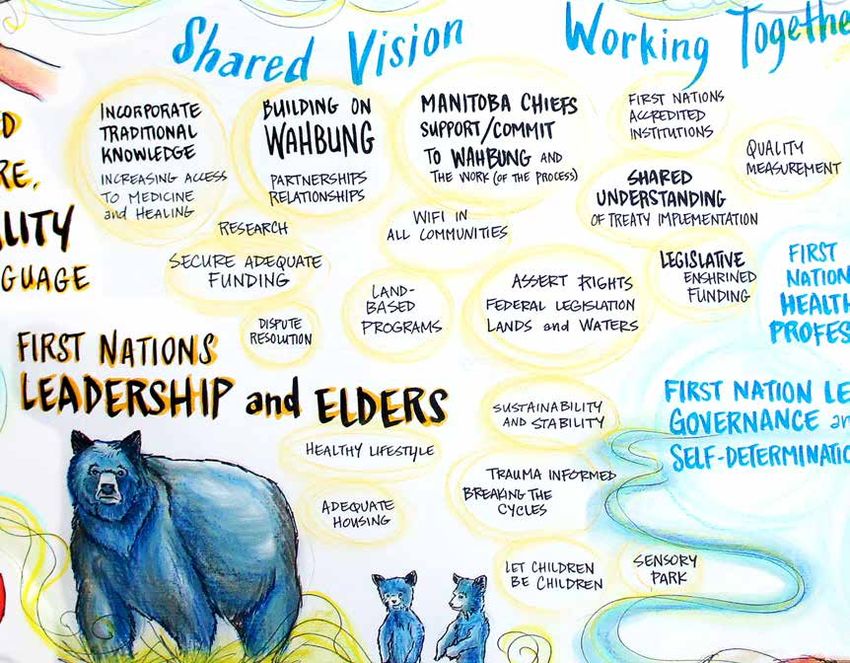 Shared Vision
Working Together
INCORPORATE
TRADITIONAL
KNOWLEDGE
INCREASING ACCESS
TO MEDICINE
and HEALING
BUILDING ON
WAHBUNG
PARTNERSHIPS
RELATIONSHIPS
MANITOBA CHIEFS
SUPPORT/COMMIT
TO WAHBUNG AND
THE WORK (OF THE PROCESS)
FIRST NATIONS
ACCREDITED
INSTITUTIONS
QUALITY
MEASUREMENT
SHARED
UNDERSTANDING
OF TREATY IMPLEMENTATION
RESEARCH
WIFI IN
ALL COMMUNITIES
SECURE ADEQUATE
FUNDING
LAND-
BASED
PROGRAMS
ASSERT RIGHTS
FEDERAL LEGISLATION
LANDS and WATERS
LEGISLATIVE
ENSHRINED
FUNDING
FIRST
NATION
HEALTH
PROFES
DISPUTE
RESOLUTION
FIRST NATIONS
LEADERSHIP and ELDERS
SUSTAINABILITY
AND STABILITY
FIRST NATION LE
GOVERNANCE an
SELF-DETERMINATIO
HEALTHY LIFESTYLE
TRAUMA INFORMED
BREAKING THE
CYCLES
ADEQUATE
HOUSING
LET CHILDREN
BE CHILDREN
SENSORY
PARK